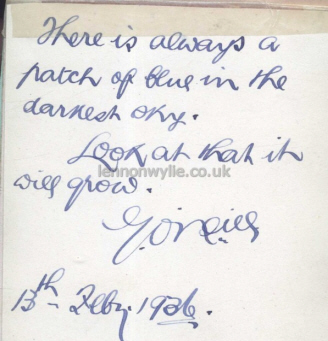 There is always a
patch of blue in the
darkest sky.
Look at that it
will grow.
lennonwylie.co.uk
G. O'Neill
13th Feby. 1926.